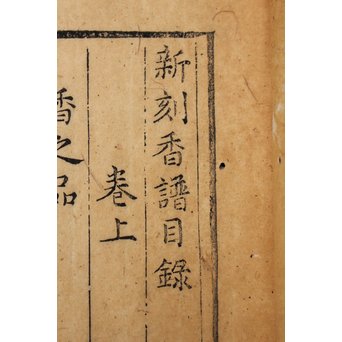 新刻香譜目錄
卷上
香之品